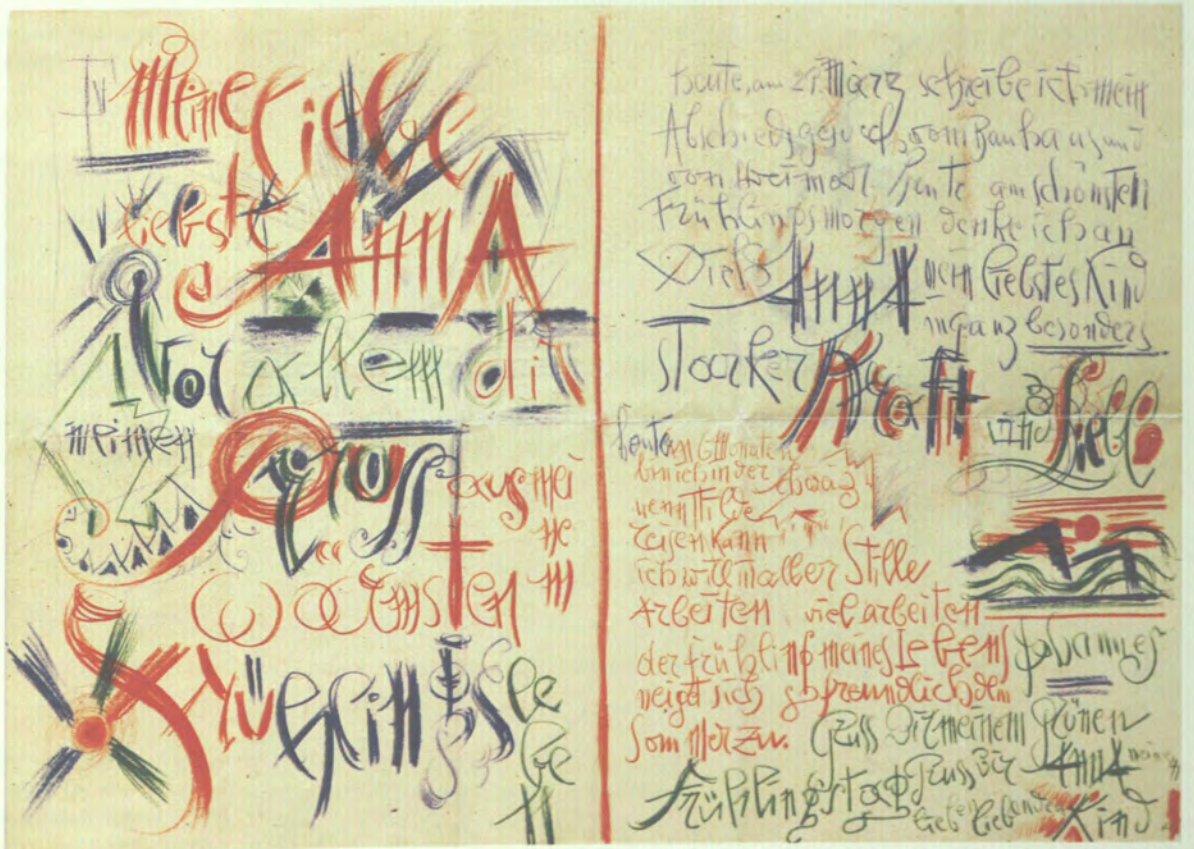 Meine liebe
liebste
AnnA
Vor allem dir
meinen Gruss aus mei
ne
wärmsten m
Frühlingsle
be
n
heute, am 27. März schreibe ich mein
Abschiedsgesuch vom Bauhaus und
von Weimar. Heute am schönsten
Frühlingsmorgen denke ich an
Dich AnnA mein liebstes Kind
in ganz besonders
starker Kraft und Liebe
heute in 6 Monaten
bin ich in der
wenn
reisen kann
ich will in aller Stille
Arbeiten viel arbeiten
der frühling meines Lebens
neigt sich so freundlich dem
Sommer zu.
Johannes
Gruss Dir meinem grünen
Frühlingstag Gruss Dir AnnA mein
lieb Kind